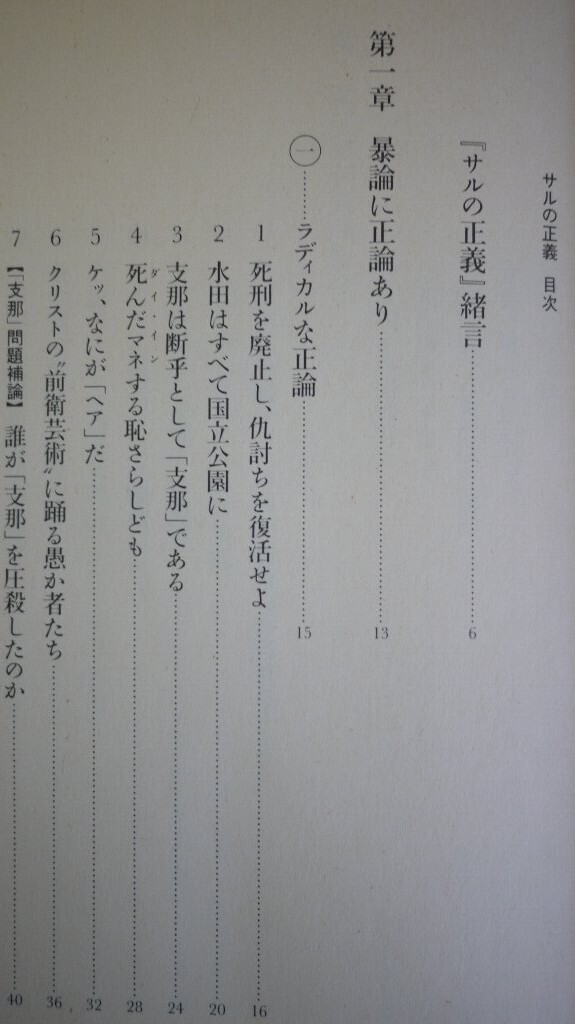 サルの正義　目次
『サルの正義』緒言……………6
第一章　暴論に正論あり……………13
㊀………ラディカルな正論……………15
1　死刑を廃止し、仇討ちを復活せよ……………16
2　水田はすべて国立公園に……………20
3　支那は断乎として「支那」である……………24
4　死んだマネする恥さらしども……………28
ダイ・イン
5　ケッ、なにが「ヘア」だ……………32
6　クリストの〝前衛芸術〟に踊る愚か者たち……………36
7　【「支那」問題補論】　誰が「支那」を圧殺したのか……………40